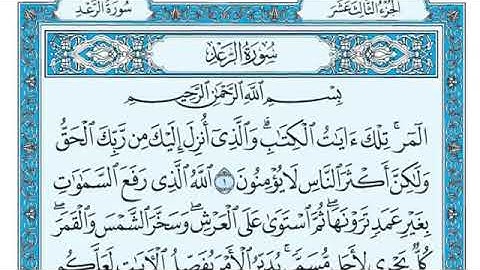 الجزء الثالث عشر
سورة الرعد
سُورَةُ الرَّعْدِ
بِسْمِ اللَّهِ الرَّحْمَٰنِ الرَّحِيمِ
الٓمٓر ۚ تِلْكَ ءَايَٰتُ الْكِتَٰبِ ۗ وَالَّذِىٓ أُنزِلَ إِلَيْكَ مِن رَّبِّكَ الْحَقُّ
وَلَٰكِنَّ أَكْثَرَ النَّاسِ لَا يُؤْمِنُونَ ١ اللَّهُ الَّذِى رَفَعَ السَّمَٰوَٰتِ
بِغَيْرِ عَمَدٍ تَرَوْنَهَا ۖ ثُمَّ اسْتَوَىٰ عَلَى الْعَرْشِ ۖ وَسَخَّرَ الشَّمْسَ وَالْقَمَرَ ۖ
كُلٌّ يَجْرِى لِأَجَلٍ مُّسَمًّى ۚ يُدَبِّرُ الْأَمْرَ يُفَصِّلُ الْءَايَٰتِ لَعَلَّكُم